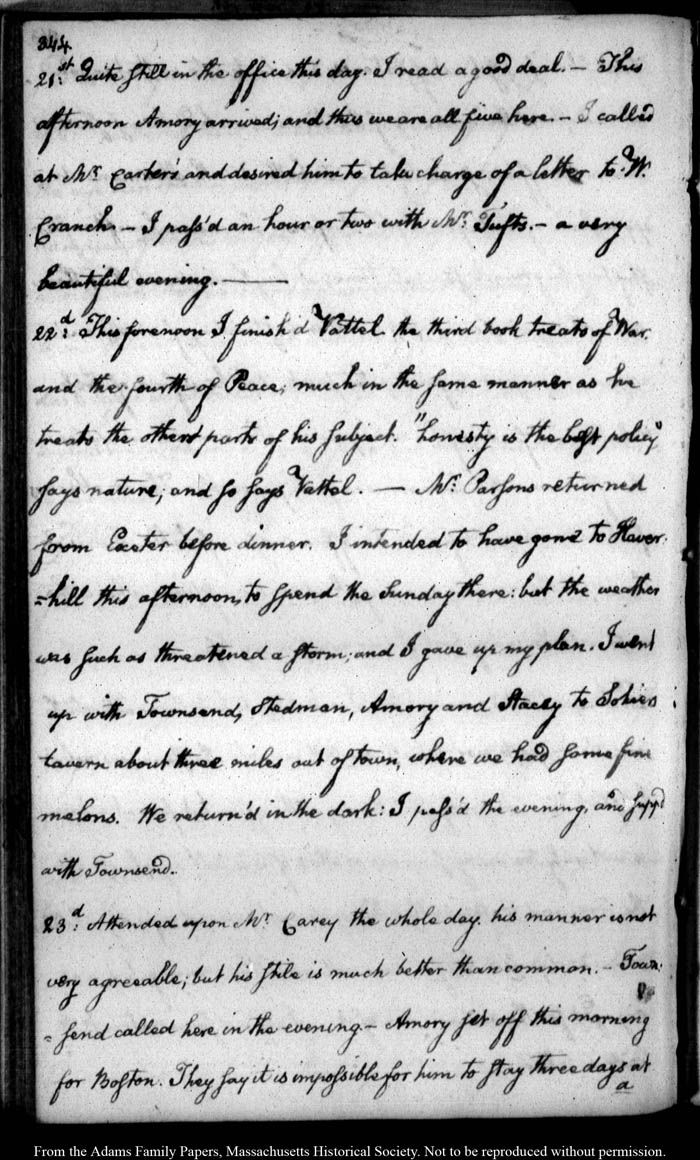 344
21st: Quite still in the office this day. I read a good deal. — This
afternoon Amory arrived; and thus we are all five here. — I called
at Mr. Carter's and desired him to take charge of a letter to W.
Cranch. — I pass'd an hour or two with Mr. Tufts. — a very
beautiful evening. ———
22d: This forenoon I finish'd Vattel. the third book treats of War.
and the fourth of Peace; much in the same manner as he
treats the other parts of his subject. "honesty is the best policy"
says nature; and so says Vattel. — Mr. Parsons returned
from Exeter before dinner. I intended to have gone to Haver-
=hill this afternoon, to spend the Sunday there: but the weather
was such as threatened a storm; and I gave up my plan. I went
up with Townsend, Stedman, Amory and Stacey to Sohiers
tavern about three miles out of town, where we had some fine
melons. We return'd in the dark: I pass'd the evening, and supp'd
with Townsend.
23d: Attended upon Mr. Carey the whole day. his manner is not
very agreeable; but his stile is much better than common. — Town:
=send called here in the evening — Amory set off this morning
for Boston. They say it is impossible for him to stay three days at
a
From the Adams Family Papers, Massachusetts Historical Society. Not to be reproduced without permission.